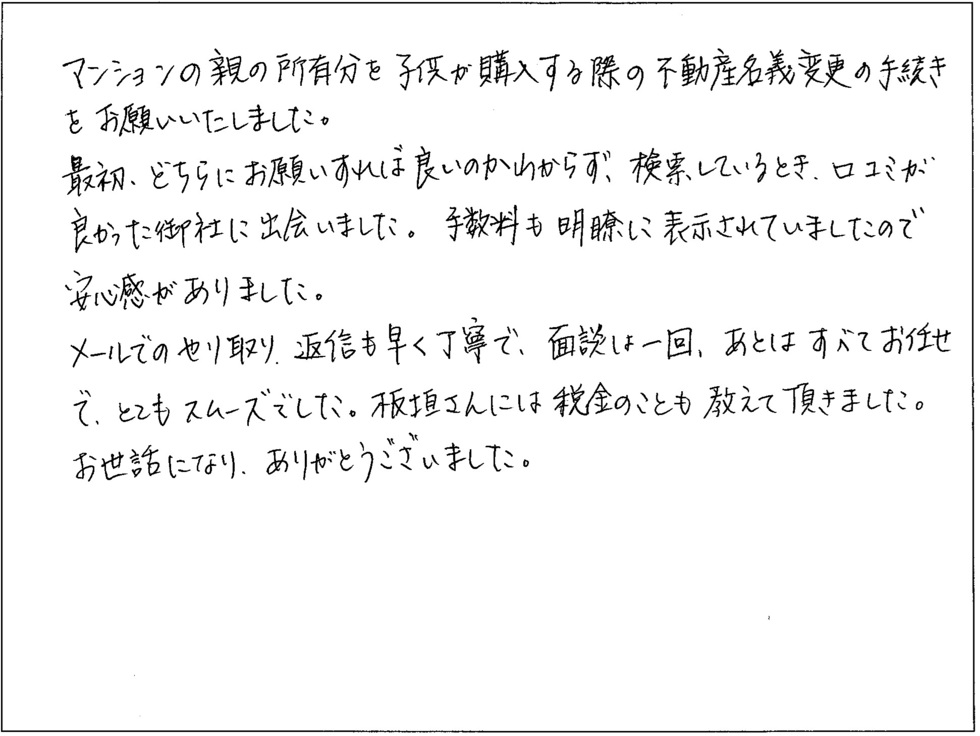 マンションの親の所有分を子供が購入する際の不動産名義変更の手続き
をお願いいたしました。
最初、どちらにお願いすれば良いのかわからず、検索しているとき、口コミが
良かった御社に出会いました。手数料も明瞭に表示されていましたので
安心感がありました。
メールでのやり取り、返信も早く丁寧で、面談は一回、あとはすべてお任せ
で、とてもスムーズでした。板垣さんには税金のことも教えて頂きました。
お世話になり、ありがとうございました。